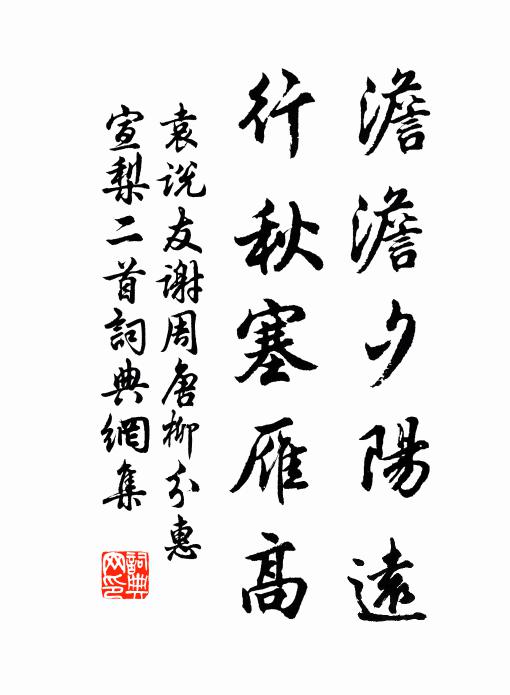 澹澹夕陽遠
行秋塞雁高
袁说友谢周唐柳分惠
宣梨二首詞典網集
詞典
网印